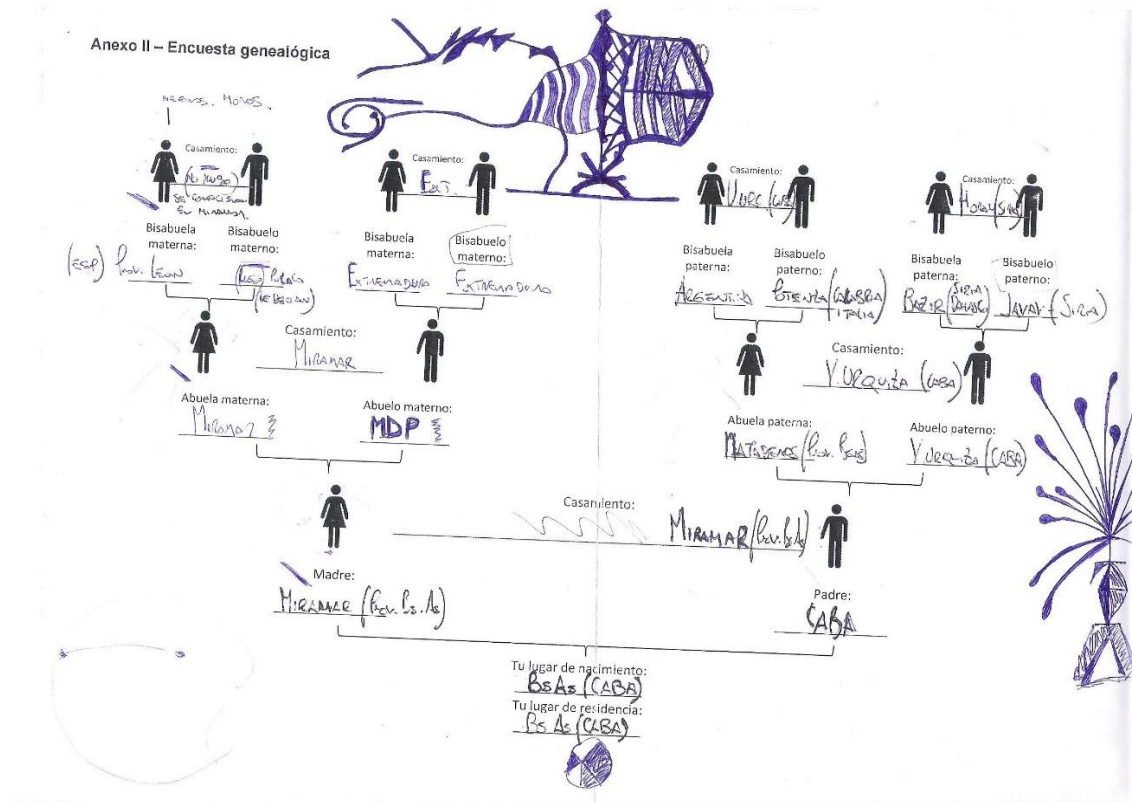 Anexo II – Encuesta genealógica
Casamiento:
(No hubo)
se conocieron
en Miramar.
Casamiento:
Ext.
Casamiento:
V. Urq (CABA)
Casamiento:
Bisabuela materna:
(ESP) Prov. León
Bisabuelo materno:
Bisabuela materna:
Extremadura
Bisabuelo materno:
Extremadura
Bisabuela paterna:
Argentina
Bisabuelo paterno:
Potenza (Calabria
Italia)
Bisabuela paterna:
Bisabuelo paterno:
(Siria)
Casamiento:
Miramar
Casamiento:
V. Urquiza (CABA)
Abuela materna:
Miramar
Abuelo materno:
MDP
Abuela paterna:
Mataderos (Prov. Bs As)
Abuelo paterno:
V. Urquiza (CABA)
Casamiento:
Miramar (Prov. Bs. As)
Madre:
Miramar (Prov. Bs. As)
Padre:
CABA
Tu lugar de nacimiento:
Bs As (CABA)
Tu lugar de residencia:
Bs As (CABA)